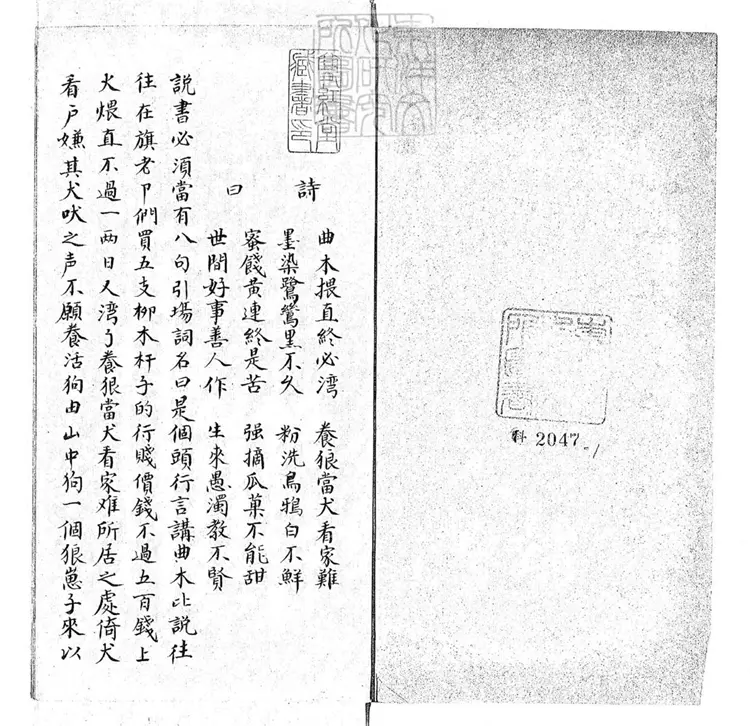 詩曰
曲木揋直終必湾 養狼當犬看家難
墨染鷺鷥黒不久 粉洗烏鴉白不鮮
蜜餞黄連終是苦 强摘瓜菓不能甜
世間好事善人作 生來愚濁教不賢
説書必湏當有八句引塲詞名曰是個頭行言講曲木比説往
往在旗老卩們買五支柳木杆子的行賤價錢不過五百錢上
火煨直不過一兩日又湾了養狼當犬看家难所居之處倚犬
看戸嫌其犬吠之声不願養活狗由山中狗一個狼崽子來以
雙紅堂藏書印
東洋文化研究所圖書
科 2047-1